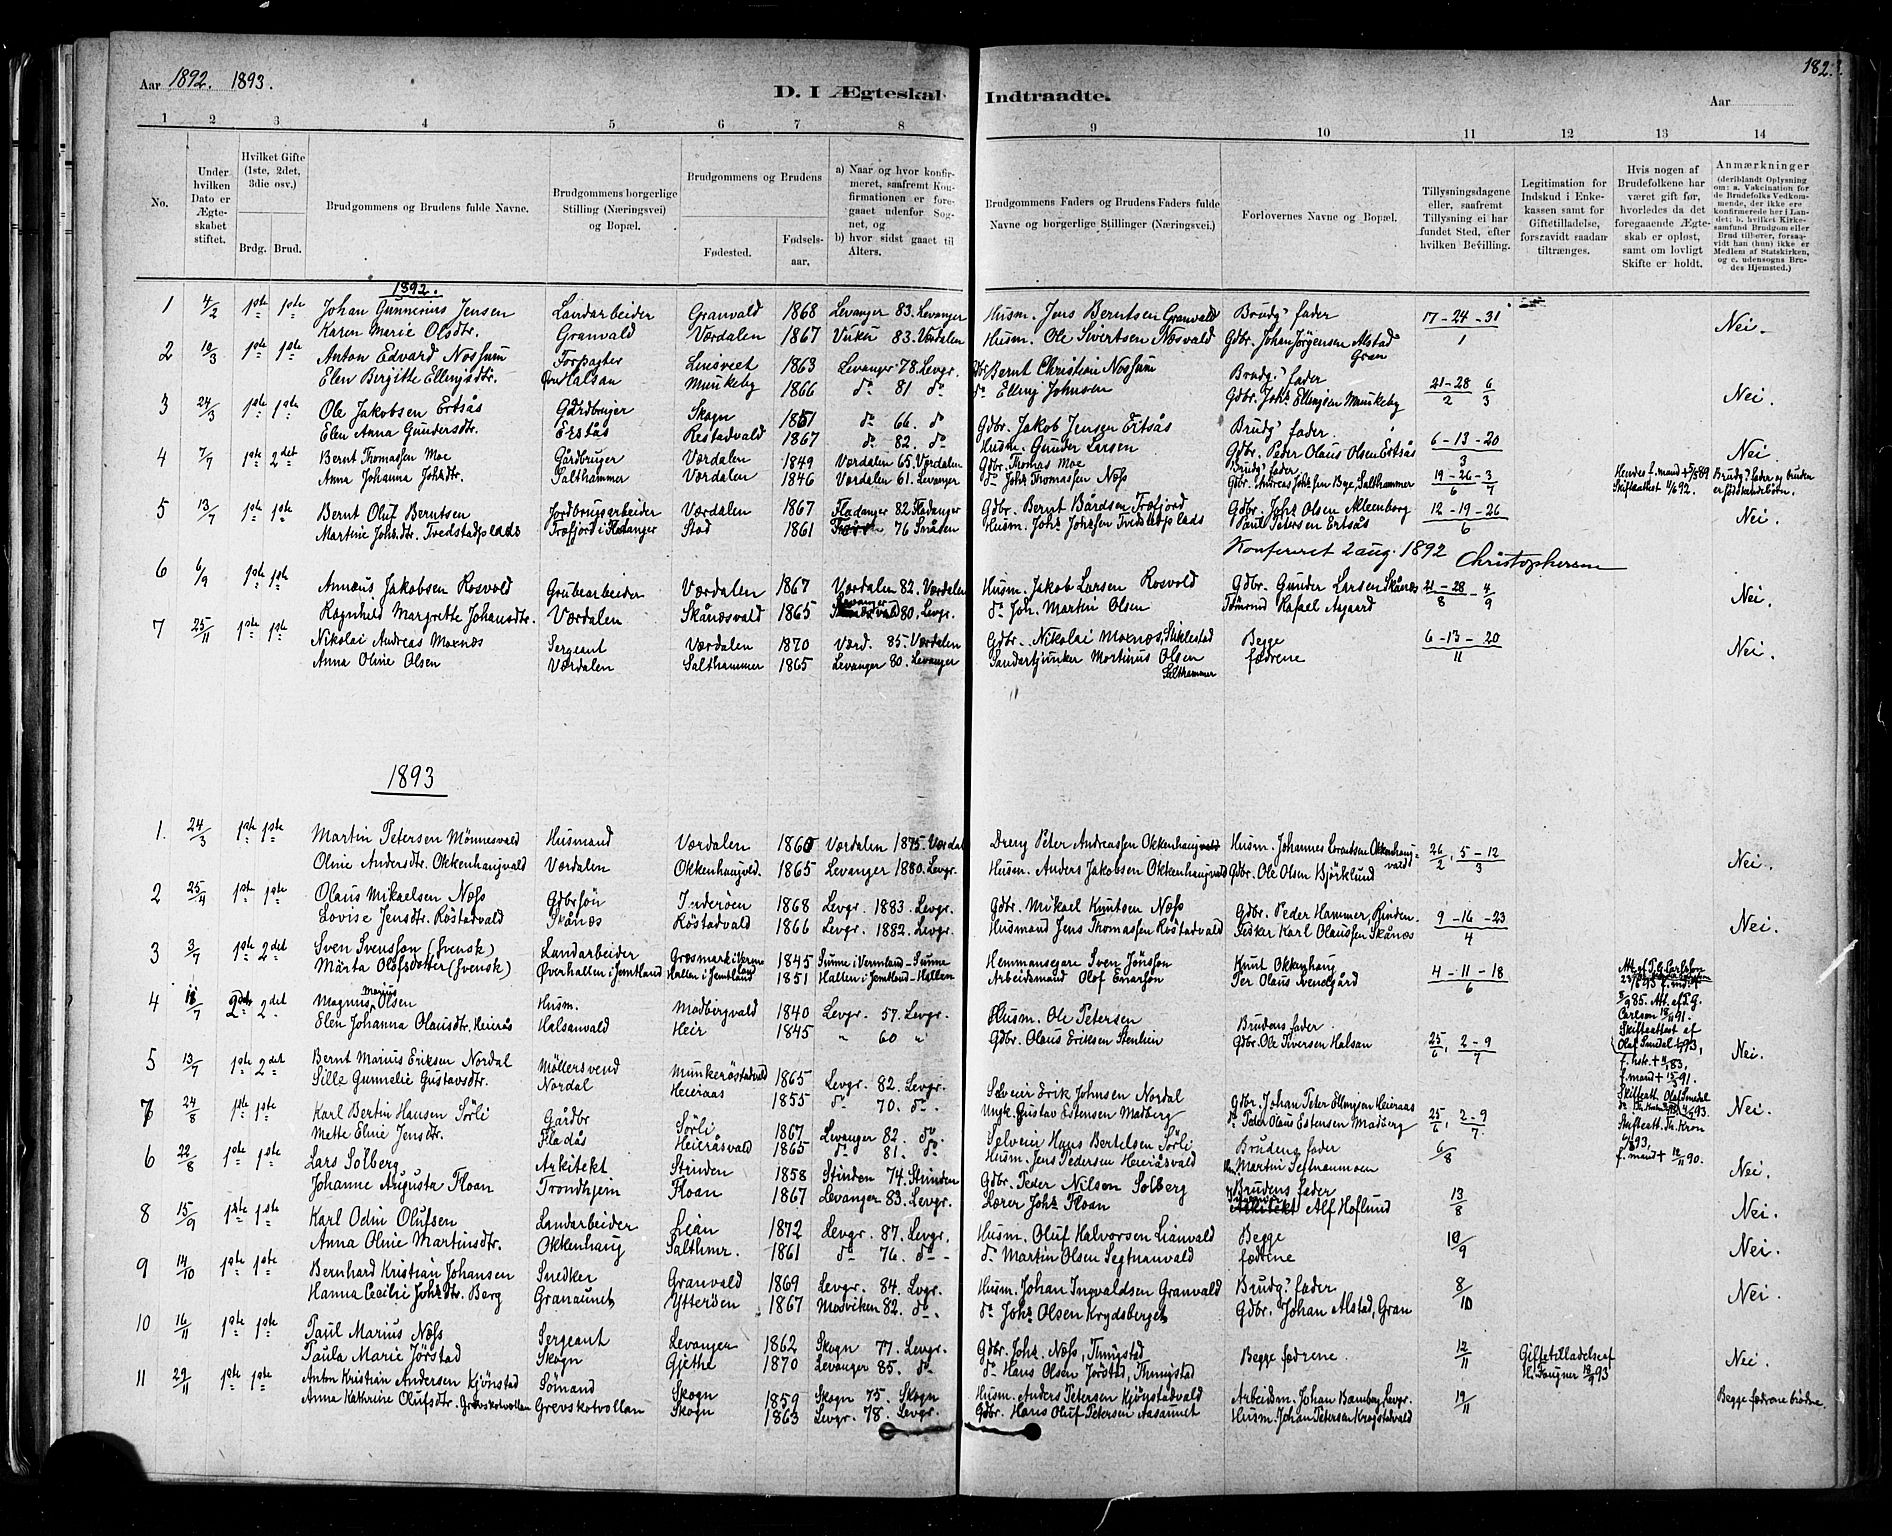 Aar 1892. 1893.
D. I Ægteskab Indtraadte.
Aar
182.
1 2 3 4 5 6 7 8 9 10 11 12 13 14
No.
Under hvilken Dato er Ægteskabet stiftet.
Hvilket Gifte (1ste, 2det, 3die osv.)
Brdg. Brud.
Brudgommens og Brudens fulde Navne.
Brudgommens borgerlige Stilling (Næringsvei) og Bopæl.
Brudgommens og Brudens
Fødested. Fødselsaar.
a) Naar og hvor konfirmeret, saafremt Konfirmationen er foregaaet udenfor Sognet, og
b) hvor sidst gaaet til Alters.
Brudgommens Faders og Brudens Faders fulde Navne og borgerlige Stillinger (Næringsvei.)
Forlovernes Navne og Bopæl.
Tillysningsdagene eller, saafremt Tillysning ei har fundet Sted, efter hvilken Bevilling.
Legitimation for Indskud i Enkekassen samt for Giftetilladelse, forsavidt saadan tiltrænges.
Hvis nogen af Brudefolkene har været gift før, hvorledes da det foregaaende Ægteskab er opløst, samt om lovligt Skifte er holdt.
Anmærkninger
(deriblandt Oplysning om: a. Vakcination for de Brudefolks Vedkommende, der ikke ere konfirmerede her i Landet; b. hvilket Kirkesamfund Brudgom eller Brud tilhører, forsaavidt han (hun) ikke er Medlem af Statskirken, og c. udensogns Brudes Hjemsted.)
1892.
1 4/2 1ste 1ste Johan Gunnerius Jensen Landarbeider Granvald 1868 Levanger 83. Levanger Husm. Jens Berntsen Granvald Brudg' fader 17-24-31/1 Nei.
Karen Marie Olsdtr. Granvald Værdalen 1867 Vuku 83. Værdalen Husm. Ole Sivertsen Næsvald Gdbr. Johan Jörgensen Alstad Gran
2 10/3 1ste 1ste Anton Edvard Nossum Forpagter 1863 Levanger 78. Levgr. Gdbr. Bernt Christian Nossum Brudg' fader 21-28/2 6/3 Nei.
Elen Birgitte Ellingsdtr. Halsan Munkeby 1866 do 81 do do Elling Johnsen Gdbr. Johs Ellingsen Munkeby
3 24/3 1ste 1ste Ole Jakobsen Ertsås Gårdbruger Skogn 1851 do 66. do Gdbr. Jakob Jensen Ertsås Brudg' fader. 6-13-20/3 Nei.
Elen Anna Gundersdtr. Ertsås Restadvald 1867 do 82. do Husm. Gunder Larsen Gdbr. Peder Olaus Olsen Ertsås
4 7/7 1ste 2det Bernt Thomassen Moe Gårdbruger Værdalen 1849 Værdalen 65. Værdalen Gdbr. Thomas Moe Brudg' fader 19-26-3/6 7 Hendes f. mand + 5/5 89 Skifteattest 11/6 92. Brudg' fader og bruden er födslendebörn.
Anna Johanna Johsdtr. Salthammer Værdalen 1846 Værdalen 61. Levanger do Johs Thomassen Næss Gdbr. Andreas Johssen Bye, Salthammer
5 13/7 1ste 1ste Bernt Oluf Berntsen Jordbrugsarbeider Værdalen 1867 Fladanger 82 Fladanger Gdbr. Bernt Bårdsen Træfjord Gdbr. Johs Olsen Aklenborg 12-19-26/6 Nei.
Martine Johsdtr. Tvedstadplads Træfjord i Fladanger Stod 1861 76 Snåsen Husm. Johs Johssen Tvedstadplads Paul Petersen Ertsås
Konfereret 2 aug. 1892 Christophersen
6 6/9 1ste 1ste Annæus Jakobsen Rosvold Grubearbeider Værdalen 1867 Værdalen 82. Værdalen Husm. Jakob Larsen Rosvold Gdbr. Gunder Larsen Skånæs 21-28/8 - 4/9 Nei.
Ragnhild Margrette Johansdtr. Værdalen Skånæsvald 1865 Levanger 80. Levgr. do Joh. Martin Olsen Rafael Aagaard
7 25/11 1ste 1ste Nikolai Andreas Moxnæs Sergeant Værdalen 1870 Værd. 85. Værdalen Gdbr. Nikolai Moxnæs, Stiklestad Begge 6-13-20/11 Nei.
Anna Oline Olsen Værdalen Salthammer 1865 Levanger 80. Levanger Landartjunker Martinus Olsen Salthammer fædrene
1893
1. 24/3 1ste 1ste Martin Petersen Mönnesvald Husmand Værdalen 1865 Værdalen 1875. Værdal Dreng Peter Andreassen Okkenhaugvald Husm. Johannes Lorentsen Okkenhaugvald 26/2, 5-12/3 Nei.
Oline Andersdtr. Okkenhaugvald Værdalen Okkenhaugvld. 1865 Levanger 1880. Levgr. Husm. Anders Jakobsen Okkenhaugvald Gdbr. Ole Olsen Björklund
2 25/4 1ste 1ste Olaus Mikaelsen Næss Gdbrsön Inderöen 1868 Levgr. 1883. Levgr. Gdbr. Mikael Knutsen Næss Gdbr. Peder Hammer, Rinden 9-16-23/4 Nei.
Lovise Jensdtr. Röstadvald Skånæs Röstadvald 1866 Levgr. 1882. Levgr. Husmand Jens Thomassen Röstadvald Fisker Karl Olaussen Skånæs
3 3/7 1ste 2det Sven Svensson (Svensk) Landarbeider Græsmark i Verml. 1845 Sunne i Vermland - Sunne Hemmansegare Sven Jönsson Knut Okkenhaug 4-11-18/6
Märta Olofsdotter (Svensk) Överhallen i Jemtland Hallen i Jemtland 1851 Hallen i Jemtland - Hallen Arbeidsmand Olof Enarson Per Olaus Svendgård
4 18/7 2det 2det Magnus Marius Olsen Husm. Madbergvald 1840 Levgr. 57. Levgr. Husm. Ole Petersen Brudens fader. 25/6, 2-9/7 Nei.
Elen Johanna Olausdtr. Heirås Halsanvald Heir 1845 " 60 " Gdbr. Olaus Eriksen Stenhin Gdbr. Ole Iversen Halsan
5 13/7 1ste 2det Bernt Marius Eriksen Nordal Möllersvend Munkeröstadvald 1865 Levgr. 82. Levgr. Selveir Erik Johnsen Nordal Gdbr. Johan Peter Ellingsen Heieraas 25/6, 2-9/7 Nei.
Sille Gunnelie Gustavsdtr. Nordal Heieraas 1855 do 70. do. Ungk. Gustav Estensen Madberg do Peder Olaus Estensen Madberg
7 24/8 1ste 1ste Karl Bertin Hansen Sörli Gårdbr Sörli 1867 Levanger 82. do. Selveir Hans Bertelsen Sörli Brudens fader 6/8 Nei.
Mette Eline Jensdtr. Fladås Heieråsvald 1865 do 81. do Husm. Jens Pedersen Heieråsvald Martin Segtnanmoen
6 22/8 1ste 1ste Lars Solberg Arkitekt Strinden 1858 Strinden 74. Strinden Gdbr. Peder Nilson Solberg Brudens fader 13/8 Nei.
Johanne Augusta Floan Trondhjem Floan 1867 Levanger 83. Levgr. Lærer Johs Floan Alf Hoflund
8 15/9 1ste 1ste Karl Odin Olufsen Landarbeider Lian 1872 Levgr. 87. Levgr. Husm. Oluf Halvorsen Lianvald Begge 10/9 Nei.
Anna Oline Martinsdtr. Okkenhaug Salthmr. 1861 do 76. do - do Martin Olsen Segtnanvald fædrene
9 14/10 1ste 1ste Bernhard Kristian Johansen Snedker Granvald 1869 Levgr. 84. Lvgr. Husm. Johan Ingvaldsen Granvald Brudg' fader 8/10 Nei.
Hanna Cecilie Johsdtr. Berg Granaunet Ytteröen 1867 Madviken 82. do. do Johs Olsen Krydsberget Gdbr. Johan Alstad, Gran
10 16/11 1ste 1ste Paul Marius Næss Sergeant Levanger 1862 Skogn 77. Levgr. Gdbr. Johs. Næss, Thingstad Begge fædrene. 12/11 Giftetilladelse af H. Faugner 18/9 93 Nei.
Paula Marie Jörstad Skogn Gjethe 1870 Levanger 85. do do Hans Olsen Jörstad, Thingstad
11 29/11 1ste 1ste Anton Kristian Andersen Kjönstad Sömand Skogn 1859 Skogn 75. Skogn Husm. Anders Petersen Kjönstadvald Arbeidsm. Johan Bamberg, Levgr. 19/11 Begge fædrene döde.
Anna Kathrine Olufsdtr. Grevskotvollan Grevskotvollan Skogn 1863 Levgr. 78. Levgr. Gdbr. Hans Oluf Petersen Aasaunet Husm. Johan Petersen Kragstadvald
Att. af P. G. Carlson
9/9 85. Att. af P. G.
Carlson 18/11 91.
Skifteattest af
Olaf Smedal 93,
f. hst. + 83,
f. mand + 15/3 91.
Skifteatt. Olaf Smedal
Skifteatt. Th. Kron
93,
f. mand + 12/11 90.